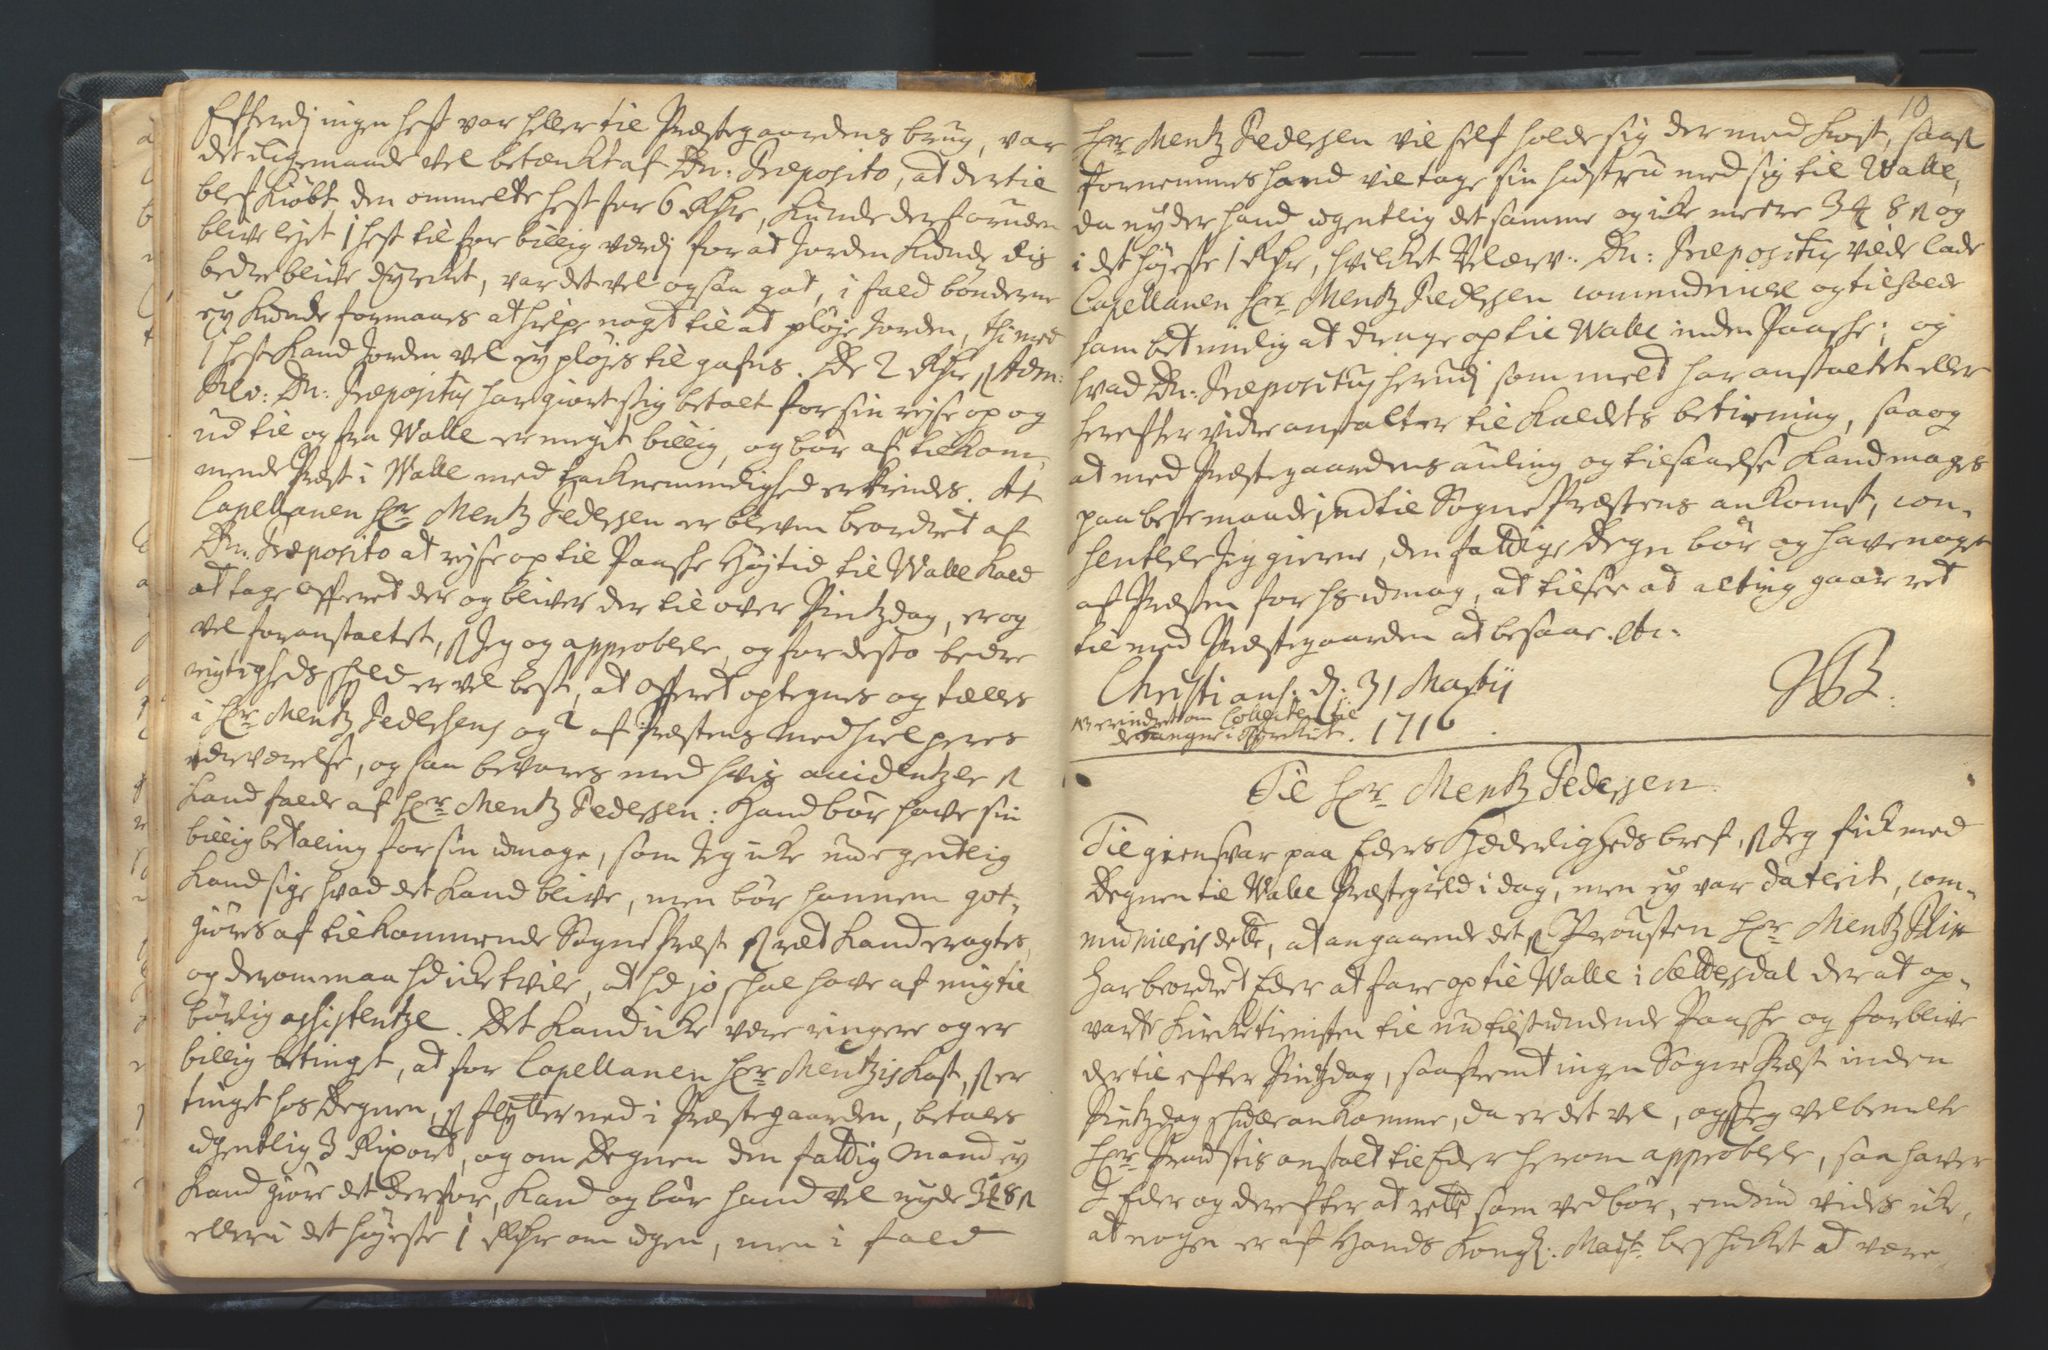 Efterdj ingen hest var heller til Præstegaardens brug, var
det ligemaade vel betænkt af Dn: Præposito, at dertil
blef kiöbt den ommelte hest for 6 Rdr, kunde derforuden
blive lejet 1 hest til for billig værdj for at Jorden kunde dis
bedre blive dyrcket, var det vel ogsaa got, i fald bönderne
ey kunde formaaes at hielpe noget til at pløje Jorden, thi med
1 hest kand Jorden vel ey pløjes til gafns. De 2 Rdr Adm:
Rev: Dn: Præpositus har giort sig betalt for sin rejse op og
ud til og fra Walle er meget billig, og bør af tilkom¬
mende Præst i Walle med tacknemmelighed erkiendes. At
Capellanen hr Mentz Pedersen er bleven beordret af
Dn. Præposito at rejse op til Paaske Højtid til Walle kald
at tage offeret der og bliver der til over Pintzdag, er og
vel foranstaltet, Jeg og approbere, og for desto bedre
rigtigheds skyld er vel best, at offeret optegnes og tælles
i hr Mentz Pedersens og 2 af Præstens medhielperes
nærværelse, og saa bevares med hvis accidentzer
kand falde af hr Mentz Pedersen: hand bør have sin
billig betaling for sin umage, som Jeg icke nu egentlig
kand sige hvad det kand blive, men bør hannem got¬
giøres af tilkommende SognePræst ræt kand eragtes,
og derom maa hd icke tvile, at hd jo skal have af mig til
børlig assistentze. Det kand icke være ringere og er
billig betinget, at for Capellanen hr Mentzis kost, er
tinget hos Degnen, flytter ned i Præstegaarden, betales
ugentlig 3 Rixort, og om Degnen den fattig mand ey
kand giøre det derfor, kand og bør hand vel nyde 3 8
eller i det høyeste 1 Rdr om ugen, men i fald
10
hr Mentz Pedersen vil self holde sig der med kost, saas
fornemmes hand vil tage sin hustru med sig til Walle,
da nyder hand ugentlig det samme og icke mere 3 8 og
i det høyeste 1 Rdr, hvilcket Dn: Præpositus vilde lade
Capellanen hr Mentz Pedersen communicere og tilholde
ham betimelig at drage op til Walle inden Paaske; og
hvad Dn: Præpositus herudj som meldt har anstaltet eller
herefter vidre anstalter til kaldets betiening, saa og
at med Præstegaardens auling og tilsaaelse kand mages
paa beste maade indtil SognePræstens ankomst, con¬
sentere Jeg gierne, den fattige Degn bør og have noget
af Præsten for hs umag, at tilsee at alting gaar ret
til med Præstegaarden at besaae. etc.
Christians: d: 31 Martij
1716.
Til hr Mentz Pedersen.
Til giensvar paa Eders Hæderligheds bref, Jeg fick med
Degnen til Walle Præstegield i dag, men ey var daterit, com¬
municeris dette, at angaaende det Prousten hr Mentz
har beordret Eder at fare op til Walle i Sættesdal der at op¬
varte kircketienisten til nu tilstundende Paaske og forblive
der til efter Pintzdag, saafremt ingen SognePræst inden
Pintzdag skulle ankomme, da er det vel, og Jeg velbemelte
hr Proustis anstalt til Eder herom approbere, saa haver
I Eder og derefter at rette som ved bør, endnu vides icke,
at nogen er af Hands Kongl: Mayt beskicket at være